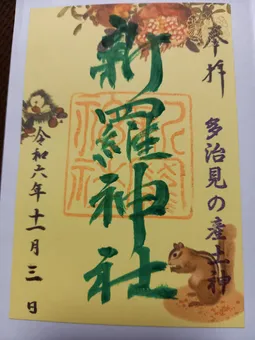 奉拝
多治見の産土神
新羅神社
令和六年十一月三日